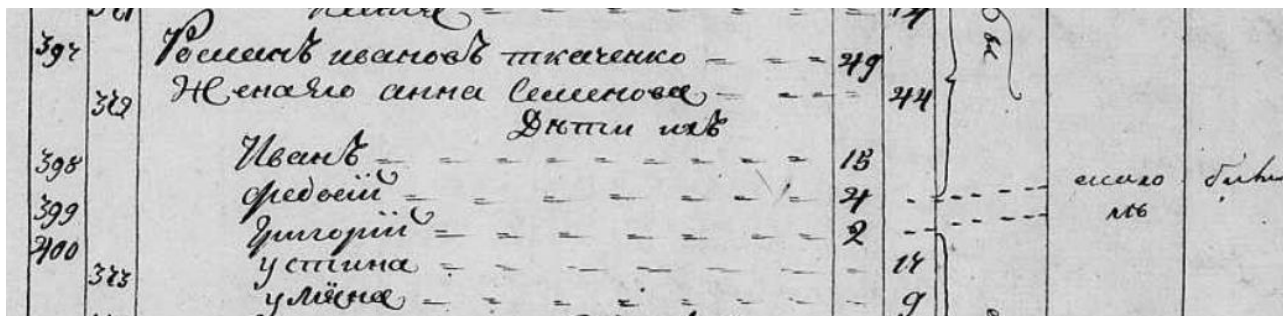 397 Романъ ивановъ ткаченко 49
Жена его анна Семенова 44
Дѣти ихъ
398 Иванъ 15
399 федосій 4
400 Григорій 2
устина
373 уліяна 9
мало
лѣ